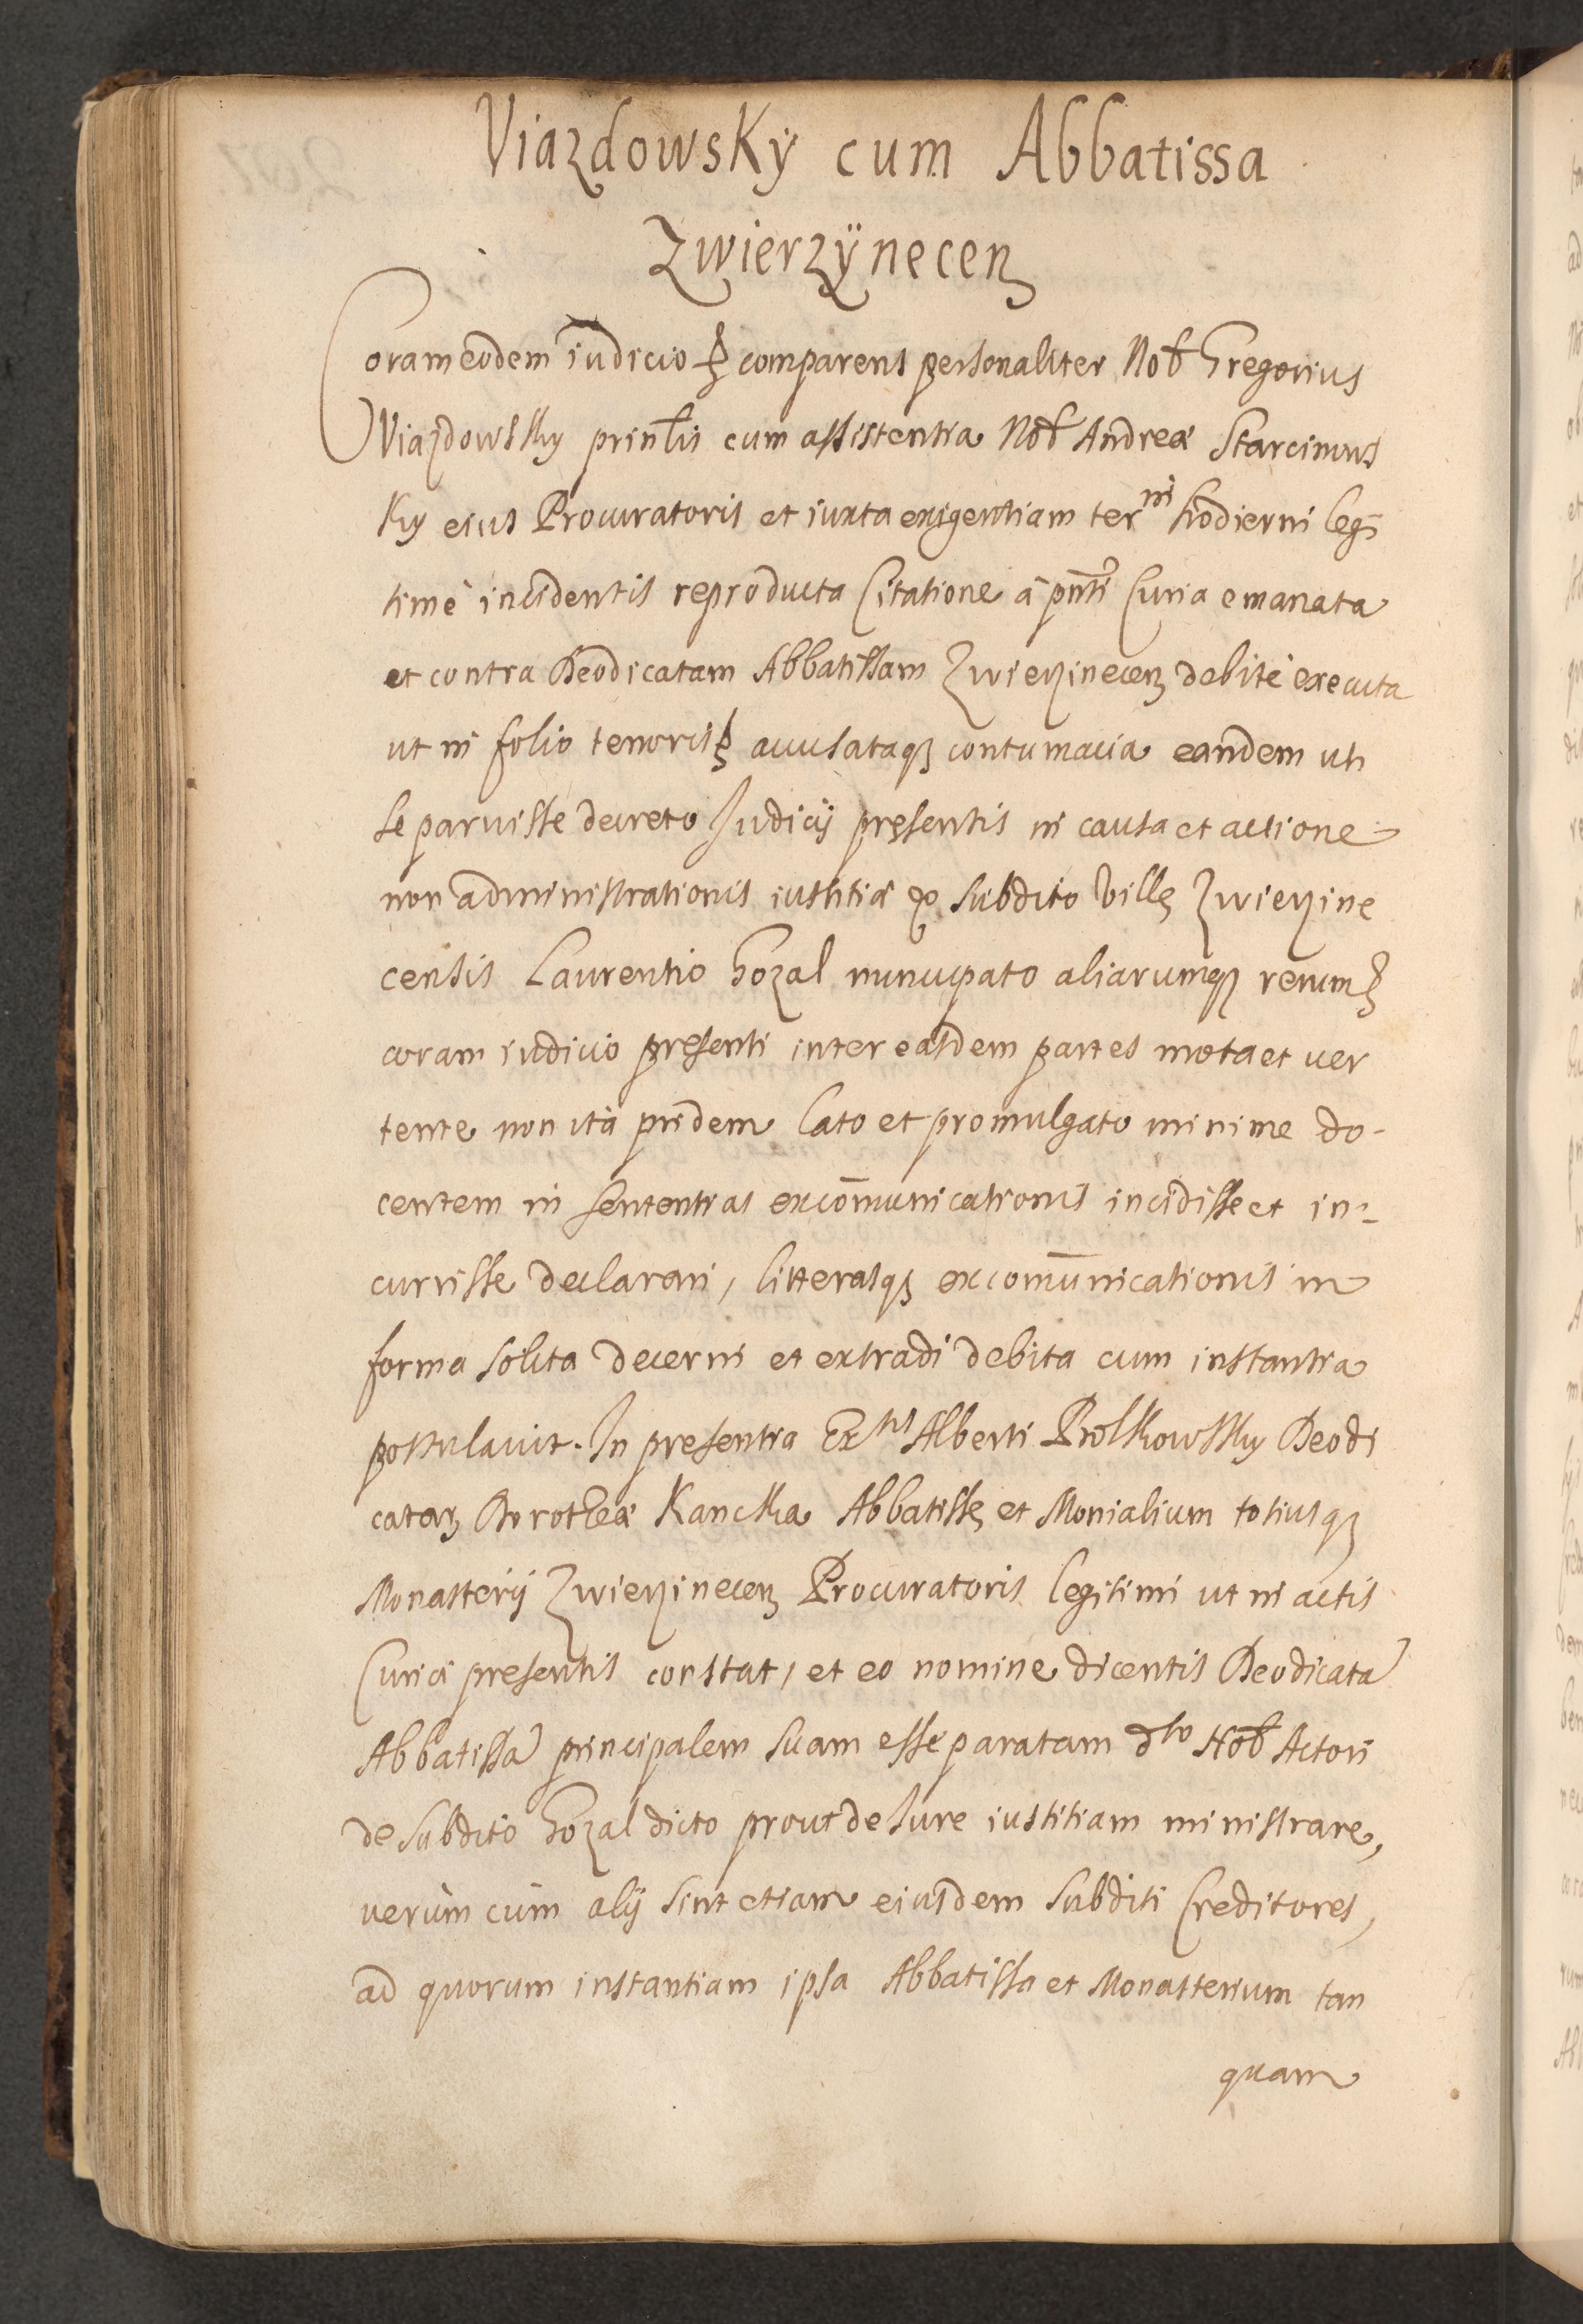 Viazdowskÿ cum Abbatissa
Zwierzÿnecen
Coram eodem iudicio comparens personaliter Nob Gregorius
Viazdowsky prinlis cum assistentia Nob Andreæ Starcinows
ky eius Procuratoris et iuxta exigentiam ter ni hodierni legi
timè incidentis reproducta Citatione à pnti Curia emanata
et contra Deodicatam Abbatissam Zwierzinecen debitè executa
ut in folio tenoris accusataq contumacia eandem uti
se paruisse decreto Iudicij presentis in causa et actione
non administrationis iustitiæ ex subdito Villę Zwierzine
censis Laurentio Gozal nuncupato aliarumq rerum
coram iudicio presenti inter easdem partes mota et ver
tente non ità pridem lato et promulgato minime do-
centem in sententias excōmunicationis incidisse et in-
currisse declarari, litterasq excomūnicationis in
forma solita decerni et extradi debita cum instantia
postulauit. In presentia Alberti Bolkowsky Deodi
catar Dorotheæ Kancka Abbatissę et Monialium totiusq
Monasterij Zwierzinecen Procuratoris legitimi ut in actis
Curiæ presentis constat, et eo nomine dicentis Deodicatā
Abbatissā principalem suam esse paratam dto Nob Actori
de subdito Gozal dicto prout de Iure iustitiam ministrare,
verùm cùm alij sint etiam eiusdem subditi Creditores,
ad quorum instantiam ipsa Abbatissa et Monasterium tan
quam